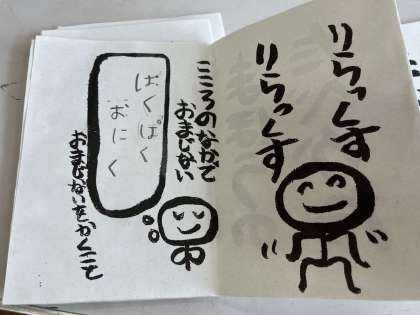 りらっくす
りらっくす
こころのなかで
おまじない
ぱくぱく
おにく
おまじないをかくこと